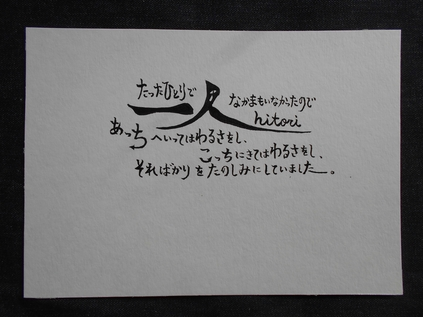 たったひとりで
一人 なかまもいなかったので
hitori
あっちへいってはわるさをし、
こっちにきてはわるさをし、
そればかりをたのしみにしていました。